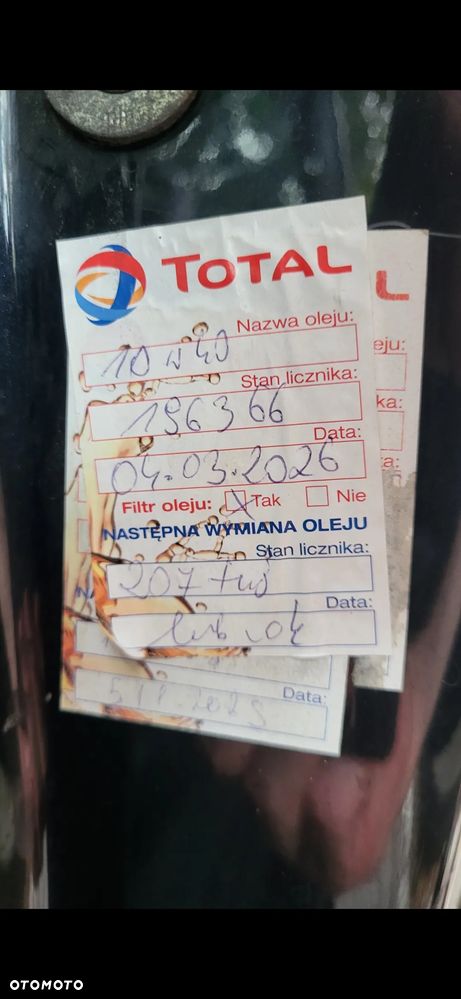 TOTAL
Nazwa oleju:
10 w 40
Stan licznika:
196366
Data:
04.03.2026
Filtr oleju: Tak Nie
NASTĘPNA WYMIANA OLEJU
Stan licznika:
207 tyś
Data:
lub rok
L
eju:
ka:
a:
Data:
OTOMOTO